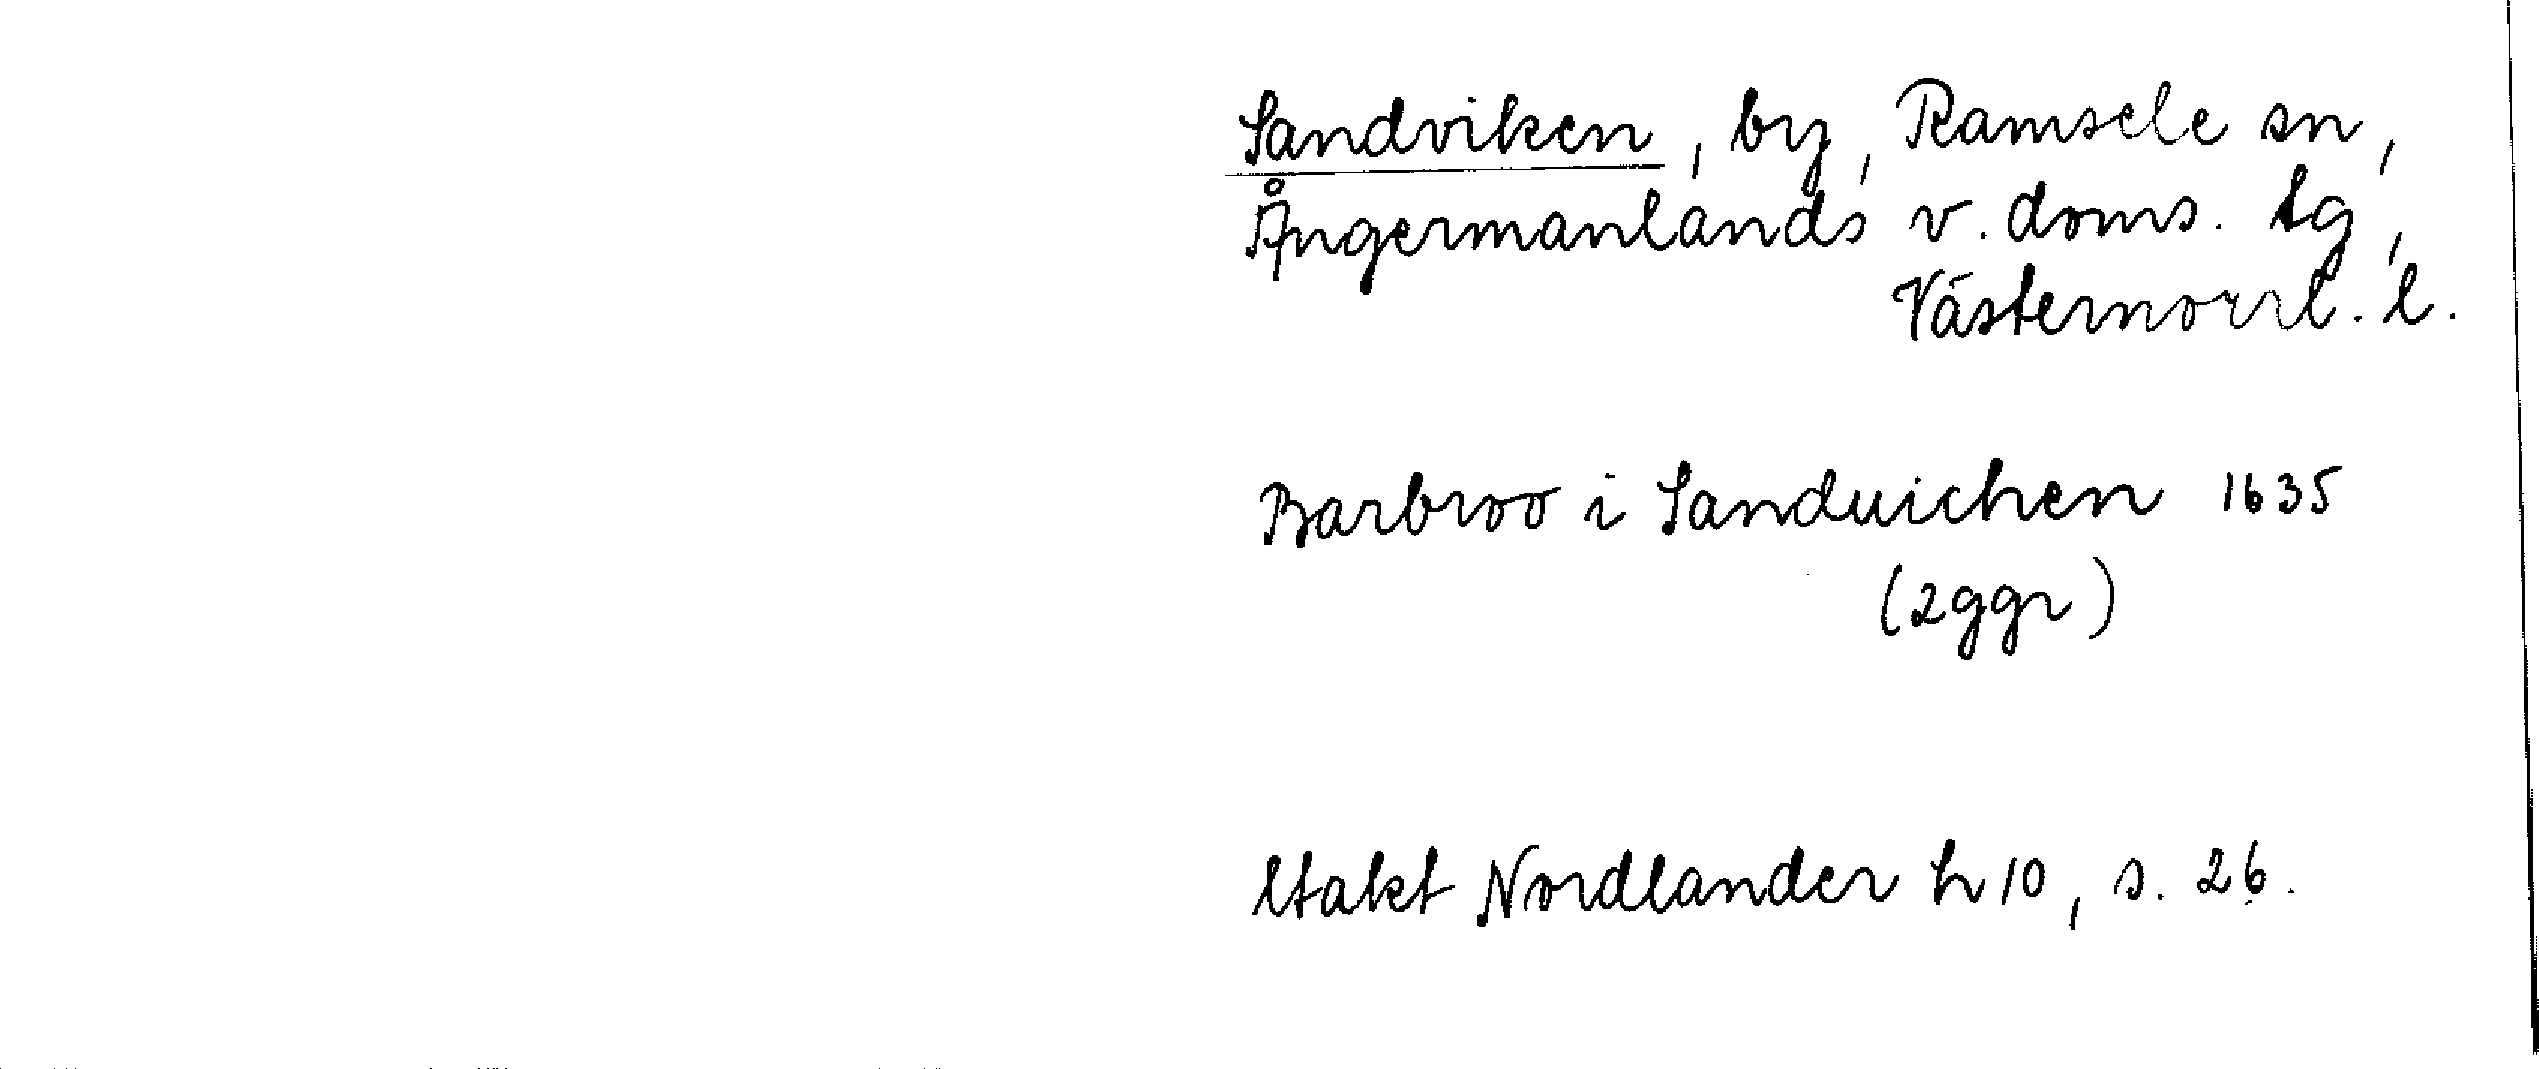 Sandviken, by, Ramsele sn,
Ångermanlands v. doms. tg,
Västernorrl. l.
Barbroo i Sanduichen 1635
(2ggr)
Utakt Nordlander h 10, s. 26.